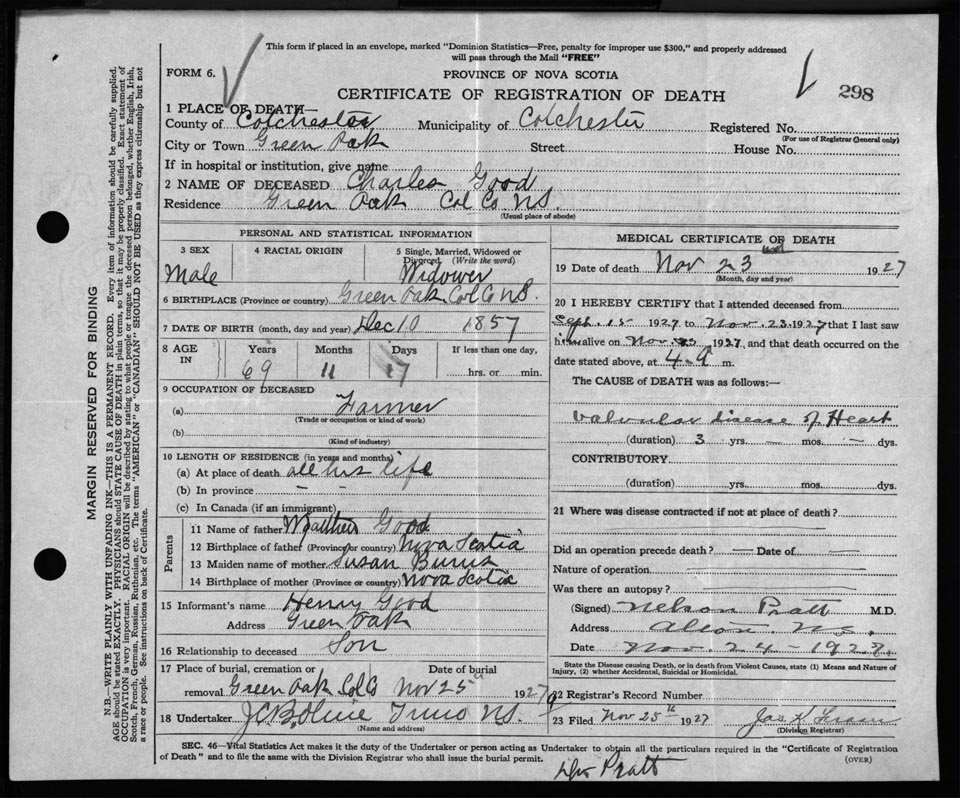 This form if placed in an envelope, marked "Dominion Statistics—Free, penalty for improper use $300," and properly addressed
will pass through the Mail "FREE"
FORM 6.
PROVINCE OF NOVA SCOTIA
CERTIFICATE OF REGISTRATION OF DEATH
298
1 PLACE OF DEATH—
County of Colchester Municipality of Colchester Registered No.
(For use of Registrar General only)
City or Town Green Oak Street House No.
If in hospital or institution, give name
2 NAME OF DECEASED Charles Good
Residence Green Oak Col Co N.S.
(Usual place of abode)
PERSONAL AND STATISTICAL INFORMATION
3 SEX 4 RACIAL ORIGIN 5 Single, Married, Widowed or
Divorced (Write the word)
Male Widower
6 BIRTHPLACE (Province or country) Green Oak Col Co N.S.
7 DATE OF BIRTH (month, day and year) Dec 10 1857
8 AGE IN Years Months Days If less than one day,
69 11 17 hrs. or min.
9 OCCUPATION OF DECEASED
(a) Farmer
(Trade or occupation or kind of work)
(b)
(Kind of industry)
10 LENGTH OF RESIDENCE (in years and months)
(a) At place of death all his life
(b) In province - -
(c) In Canada (if an immigrant)
Parents
11 Name of father Good
12 Birthplace of father (Province or country) Nova Scotia
13 Maiden name of mother Susan Burns
14 Birthplace of mother (Province or country) Nova Scotia
15 Informant's name Henry Good
Address Green Oak
16 Relationship to deceased Son
17 Place of burial, cremation or Date of burial
removal Green Oak Col Co Nov 25 1927
18 Undertaker Truro N.S.
(Name and address)
MEDICAL CERTIFICATE OF DEATH
19 Date of death Nov 23 1927
(Month, day and year)
20 I HEREBY CERTIFY that I attended deceased from
Sept. 15 1927 to Nov. 23 1927 that I last saw
him alive on Nov 23 1927, and that death occurred on the
date stated above, at 4-9 m.
The CAUSE of DEATH was as follows:—
Valvular disease of Heart
(duration) 3 yrs. — mos. — dys.
CONTRIBUTORY
(duration) yrs. mos. dys.
21 Where was disease contracted if not at place of death?
Did an operation precede death? — Date of —
Nature of operation
Was there an autopsy?
(Signed) Nelson Pratt M.D.
Address N.S.
Date Nov. 24 - 1927
State the Disease causing Death, or in death from Violent Causes, state (1) Means and Nature of
Injury, (2) whether Accidental, Suicidal or Homicidal.
22 Registrar's Record Number
23 Filed Nov 25th 1927 Jas K Fraser
(Division Registrar)
SEC. 46—Vital Statistics Act makes it the duty of the Undertaker or person acting as Undertaker to obtain all the particulars required in the "Certificate of Registration
of Death" and to file the same with the Division Registrar who shall issue the burial permit.
(OVER)
Pratt
MARGIN RESERVED FOR BINDING
N.B.—WRITE PLAINLY WITH UNFADING INK—THIS IS A PERMANENT RECORD. Every item of information should be carefully supplied.
AGE should be stated EXACTLY. PHYSICIANS should STATE CAUSE OF DEATH in plain terms, so that it may be properly classified. Exact statement of
OCCUPATION is very important. RACIAL ORIGIN will be described by stating to what people or tongue the deceased person belonged, whether English, Irish,
Scotch, French, German, Russian, Ruthenian, etc. The terms "AMERICAN" or "CANADIAN" SHOULD NOT BE USED as they express citizenship but not
a race or people. See instructions on back of Certificate.